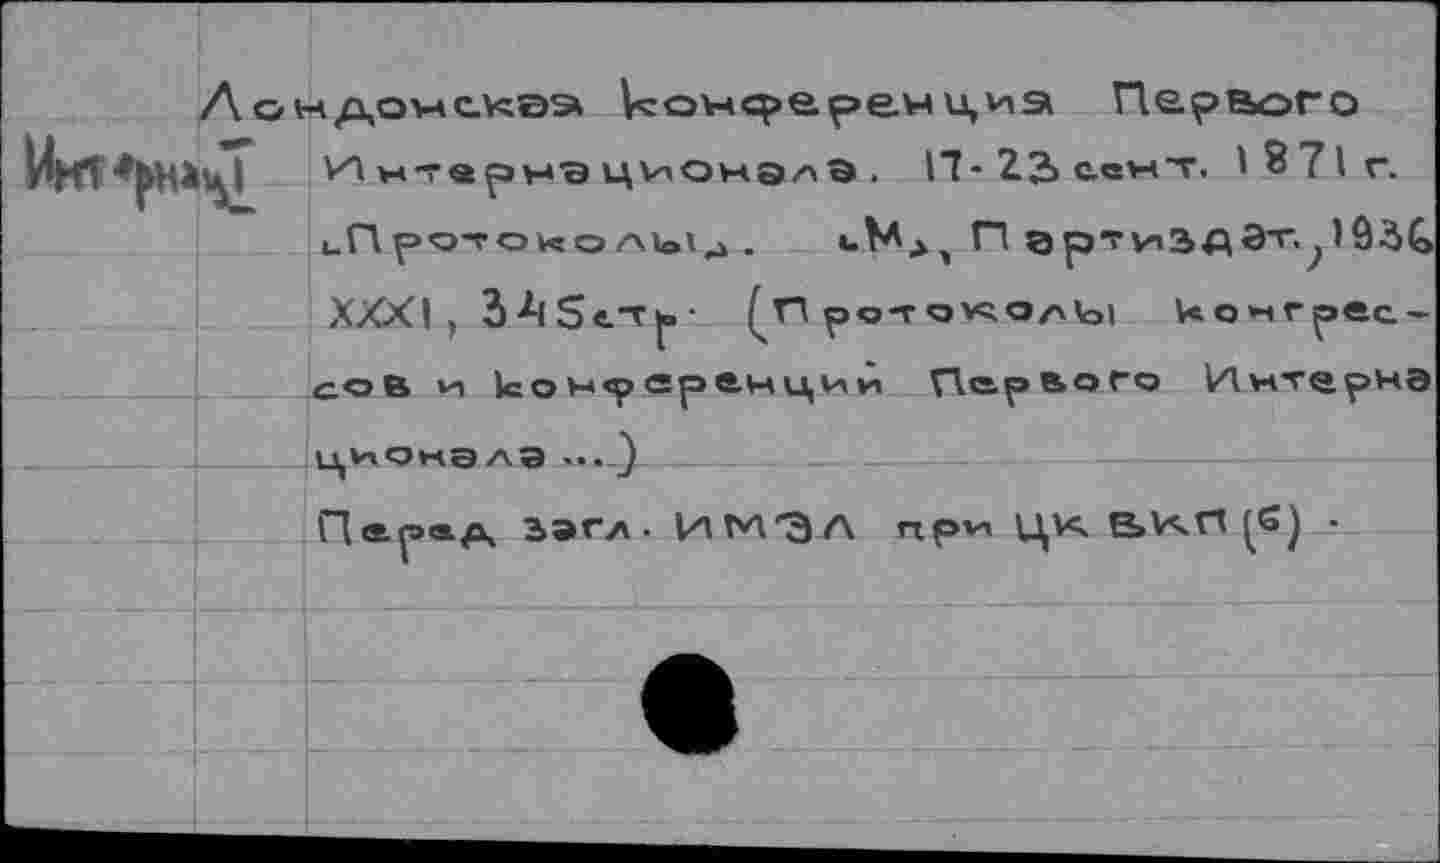 Лондонская конференция Первого
Интернац I
Интернационала. 17-23 сент. 1871 г.
Протоколы. М., Партиздат, 1936
XXXI, 345 стр. (Протоколы конгрес-
сов и конференций Первого Интерна
ционала ...)
Перед загл. ИМЭЛ при ЦК ВКП(б).